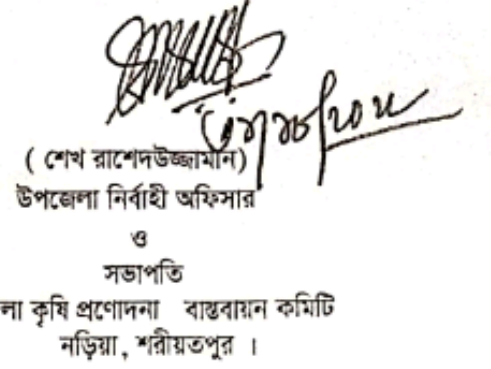 ( শেখ রাশেদউজ্জামান)
উপজেলা নির্বাহী অফিসার
ও
সভাপতি
লা কৃষি প্রণোদনা বাস্তবায়ন কমিটি
নড়িয়া, শরীয়তপুর ।